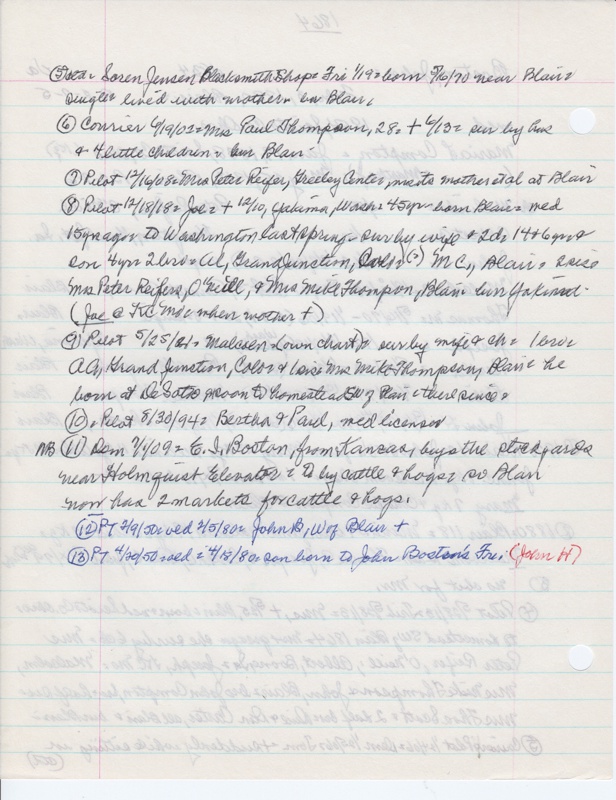 1864
Soren Jensen Blacksmith Shop = Fri 1/19 = born 5/16/70 near Blair =
single = lived with mother = bur Blair.
(6) Courier 6/19/02 = Mrs Paul Thompson, 28 = + 6/13 = sur by hus
& 4 little children = bur Blair
(7) Pilot 12/16/08 = Mrs Peter Reifer, Greeley Center, visits mother et al at Blair
(8) Pilot 12/18/18 = Joe = + 12/10, Yakima, Wash = 45 yr = born Blair = med
15 yr ago = to Washington last spring = sur by wife & 2 ds 14 & 6 yr &
son 4 yr = 2 bro = Al, Grand Junction, Colo = (?) M C, Blair = sis
Mrs Peter Reifers, O'Neill, & Mrs Mike Thompson, Blair = bur Yakima.
(Joe @ KC Mo when mother +)
(9) Pilot 5/25/21 = Malcolm = (own chart) = sur by wife & ch = 1 bro =
A A, Grand Junction, Colo & 1 sis = Mrs Mike Thompson, Blair = he
born at DeSoto = soon to homestead SW of Blair = there since =
(10) Pilot 8/30/94 = Bertha & Paul, med license
NB (11) Dem 7/1/09 = E. J. Boston, from Kansas, buys the stockyards
near Holmquist Elevator = to by cattle & hogs, so Blair
now has 2 markets for cattle & hogs.
(12) PT 2/9/50 = wed 2/5/80 = John B, W of Blair +
(13) PT 4/20/50 = wed = 4/15/80 = son born to John Boston's Fri. (John H)